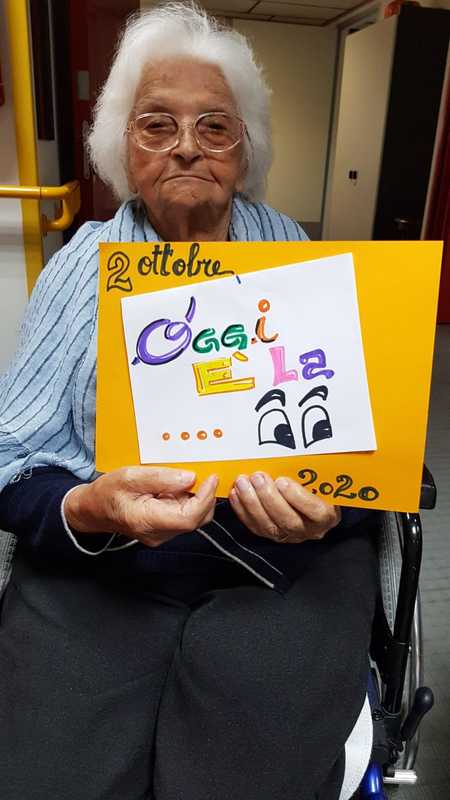 2 ottobre
Oggi
È La
....
2020